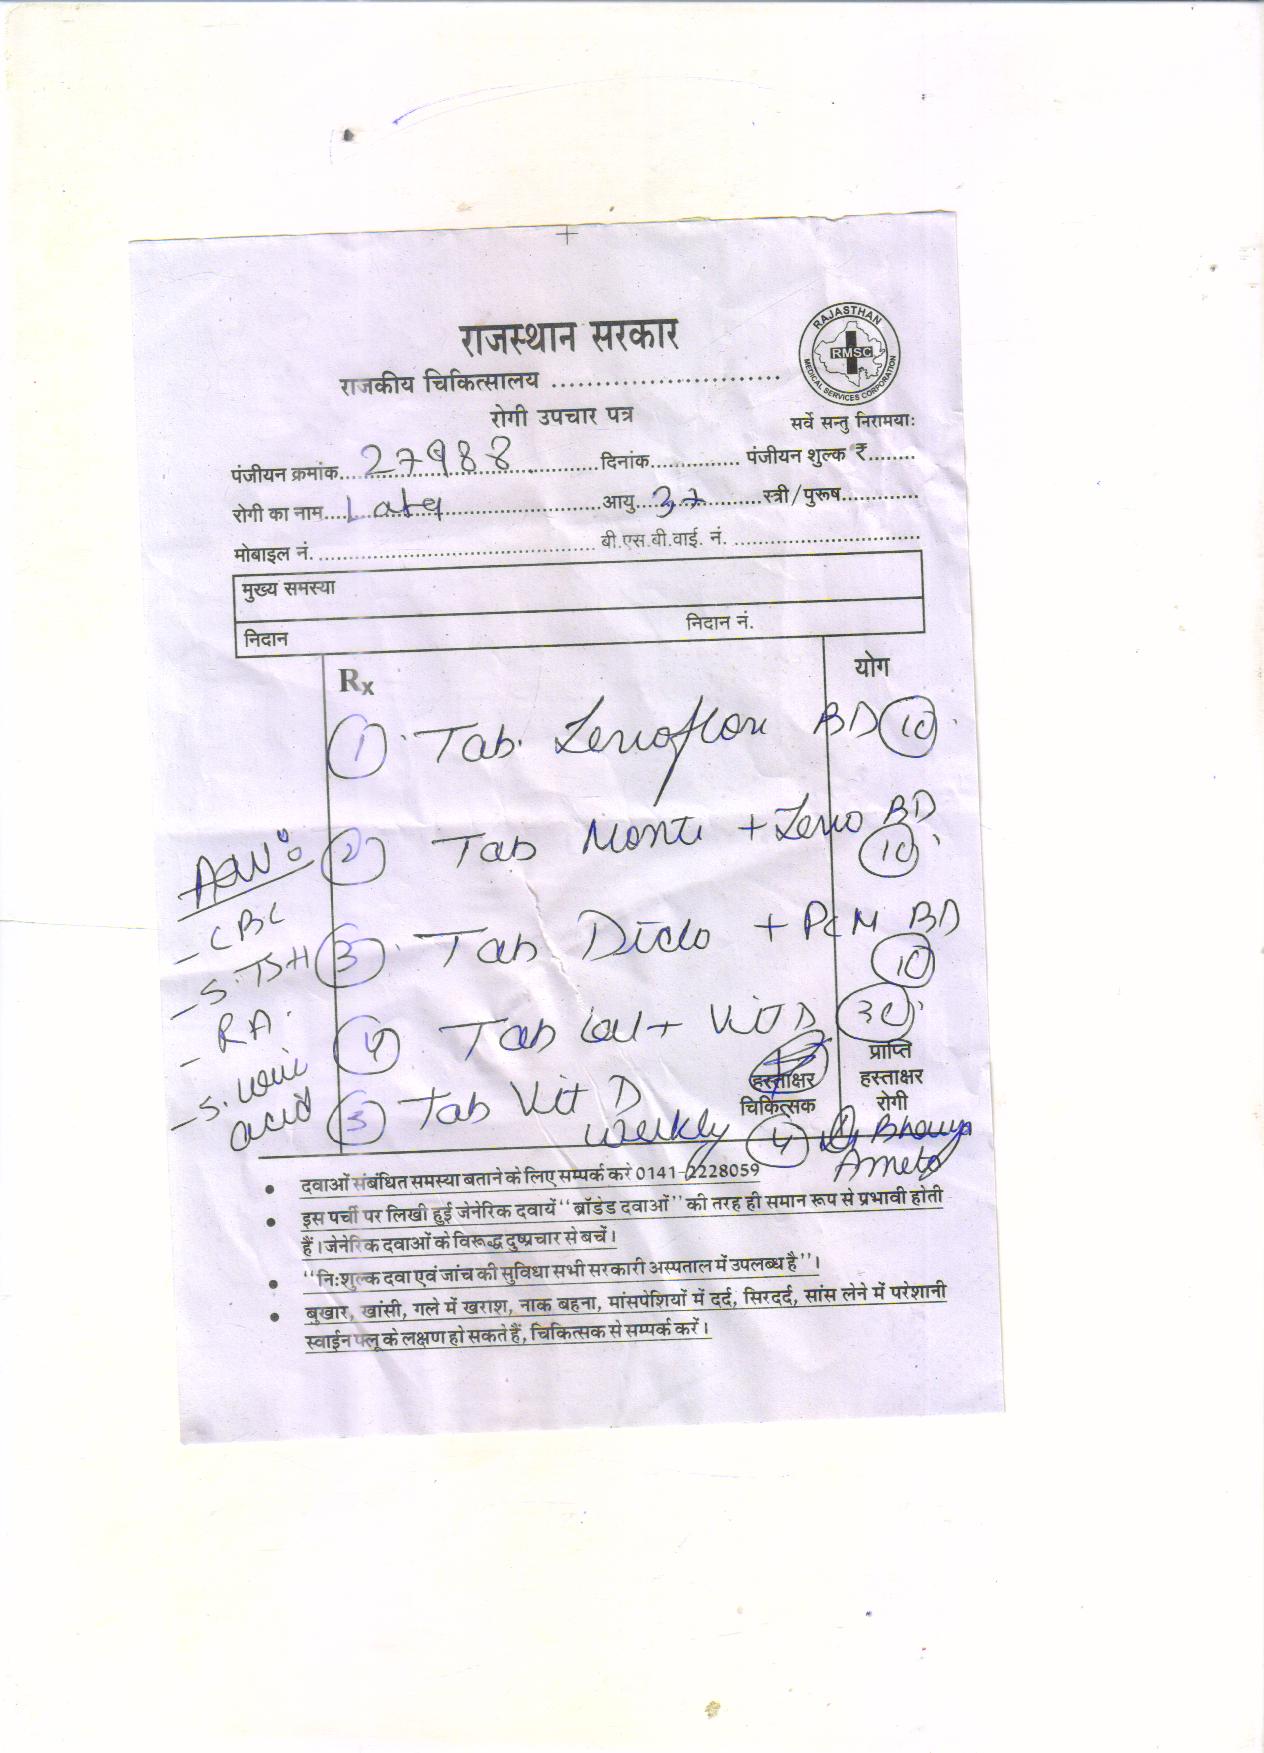 राजस्थान सरकार
राजकीय चिकित्सालय ..........................
रोगी उपचार पत्र
RAJASTHAN
RMSC
MEDICAL SERVICES CORPORATION
सर्वे सन्तु निरामयाः
पंजीयन क्रमांक...27988...दिनांक............... पंजीयन शुल्क ₹........
रोगी का नाम...आयु...37...स्त्री/पुरूष.............
मोबाइल नं. ............................................. बी.एस.बी.वाई. नं. ..............................
मुख्य समस्या
निदान निदान नं.
Rx योग
① Tab. BD ⑩
② Tab Monti + Levo BD ⑩
③ Tab Diclo + PCM BD ⑩
④ Tab Cal + Vit D ㉚
⑤ Tab Vit D weekly ④
Adv:
- CBC
- S. TSH
- RA
- S. uric acid
हस्ताक्षर
चिकित्सक
प्राप्ति
हस्ताक्षर
रोगी
• दवाओं संबंधित समस्या बताने के लिए सम्पर्क करें 0141-2228059
• इस पर्ची पर लिखी हुई जेनेरिक दवायें "ब्रॉडेड दवाओं" की तरह ही समान रूप से प्रभावी होती
हैं। जेनेरिक दवाओं के विरूद्ध दुष्प्रचार से बचें।
• "निःशुल्क दवा एवं जांच की सुविधा सभी सरकारी अस्पताल में उपलब्ध है"।
• बुखार, खांसी, गले में खराश, नाक बहना, मांसपेशियों में दर्द, सिरदर्द, सांस लेने में परेशानी
स्वाईन फ्लू के लक्षण हो सकते हैं, चिकित्सक से सम्पर्क करें।